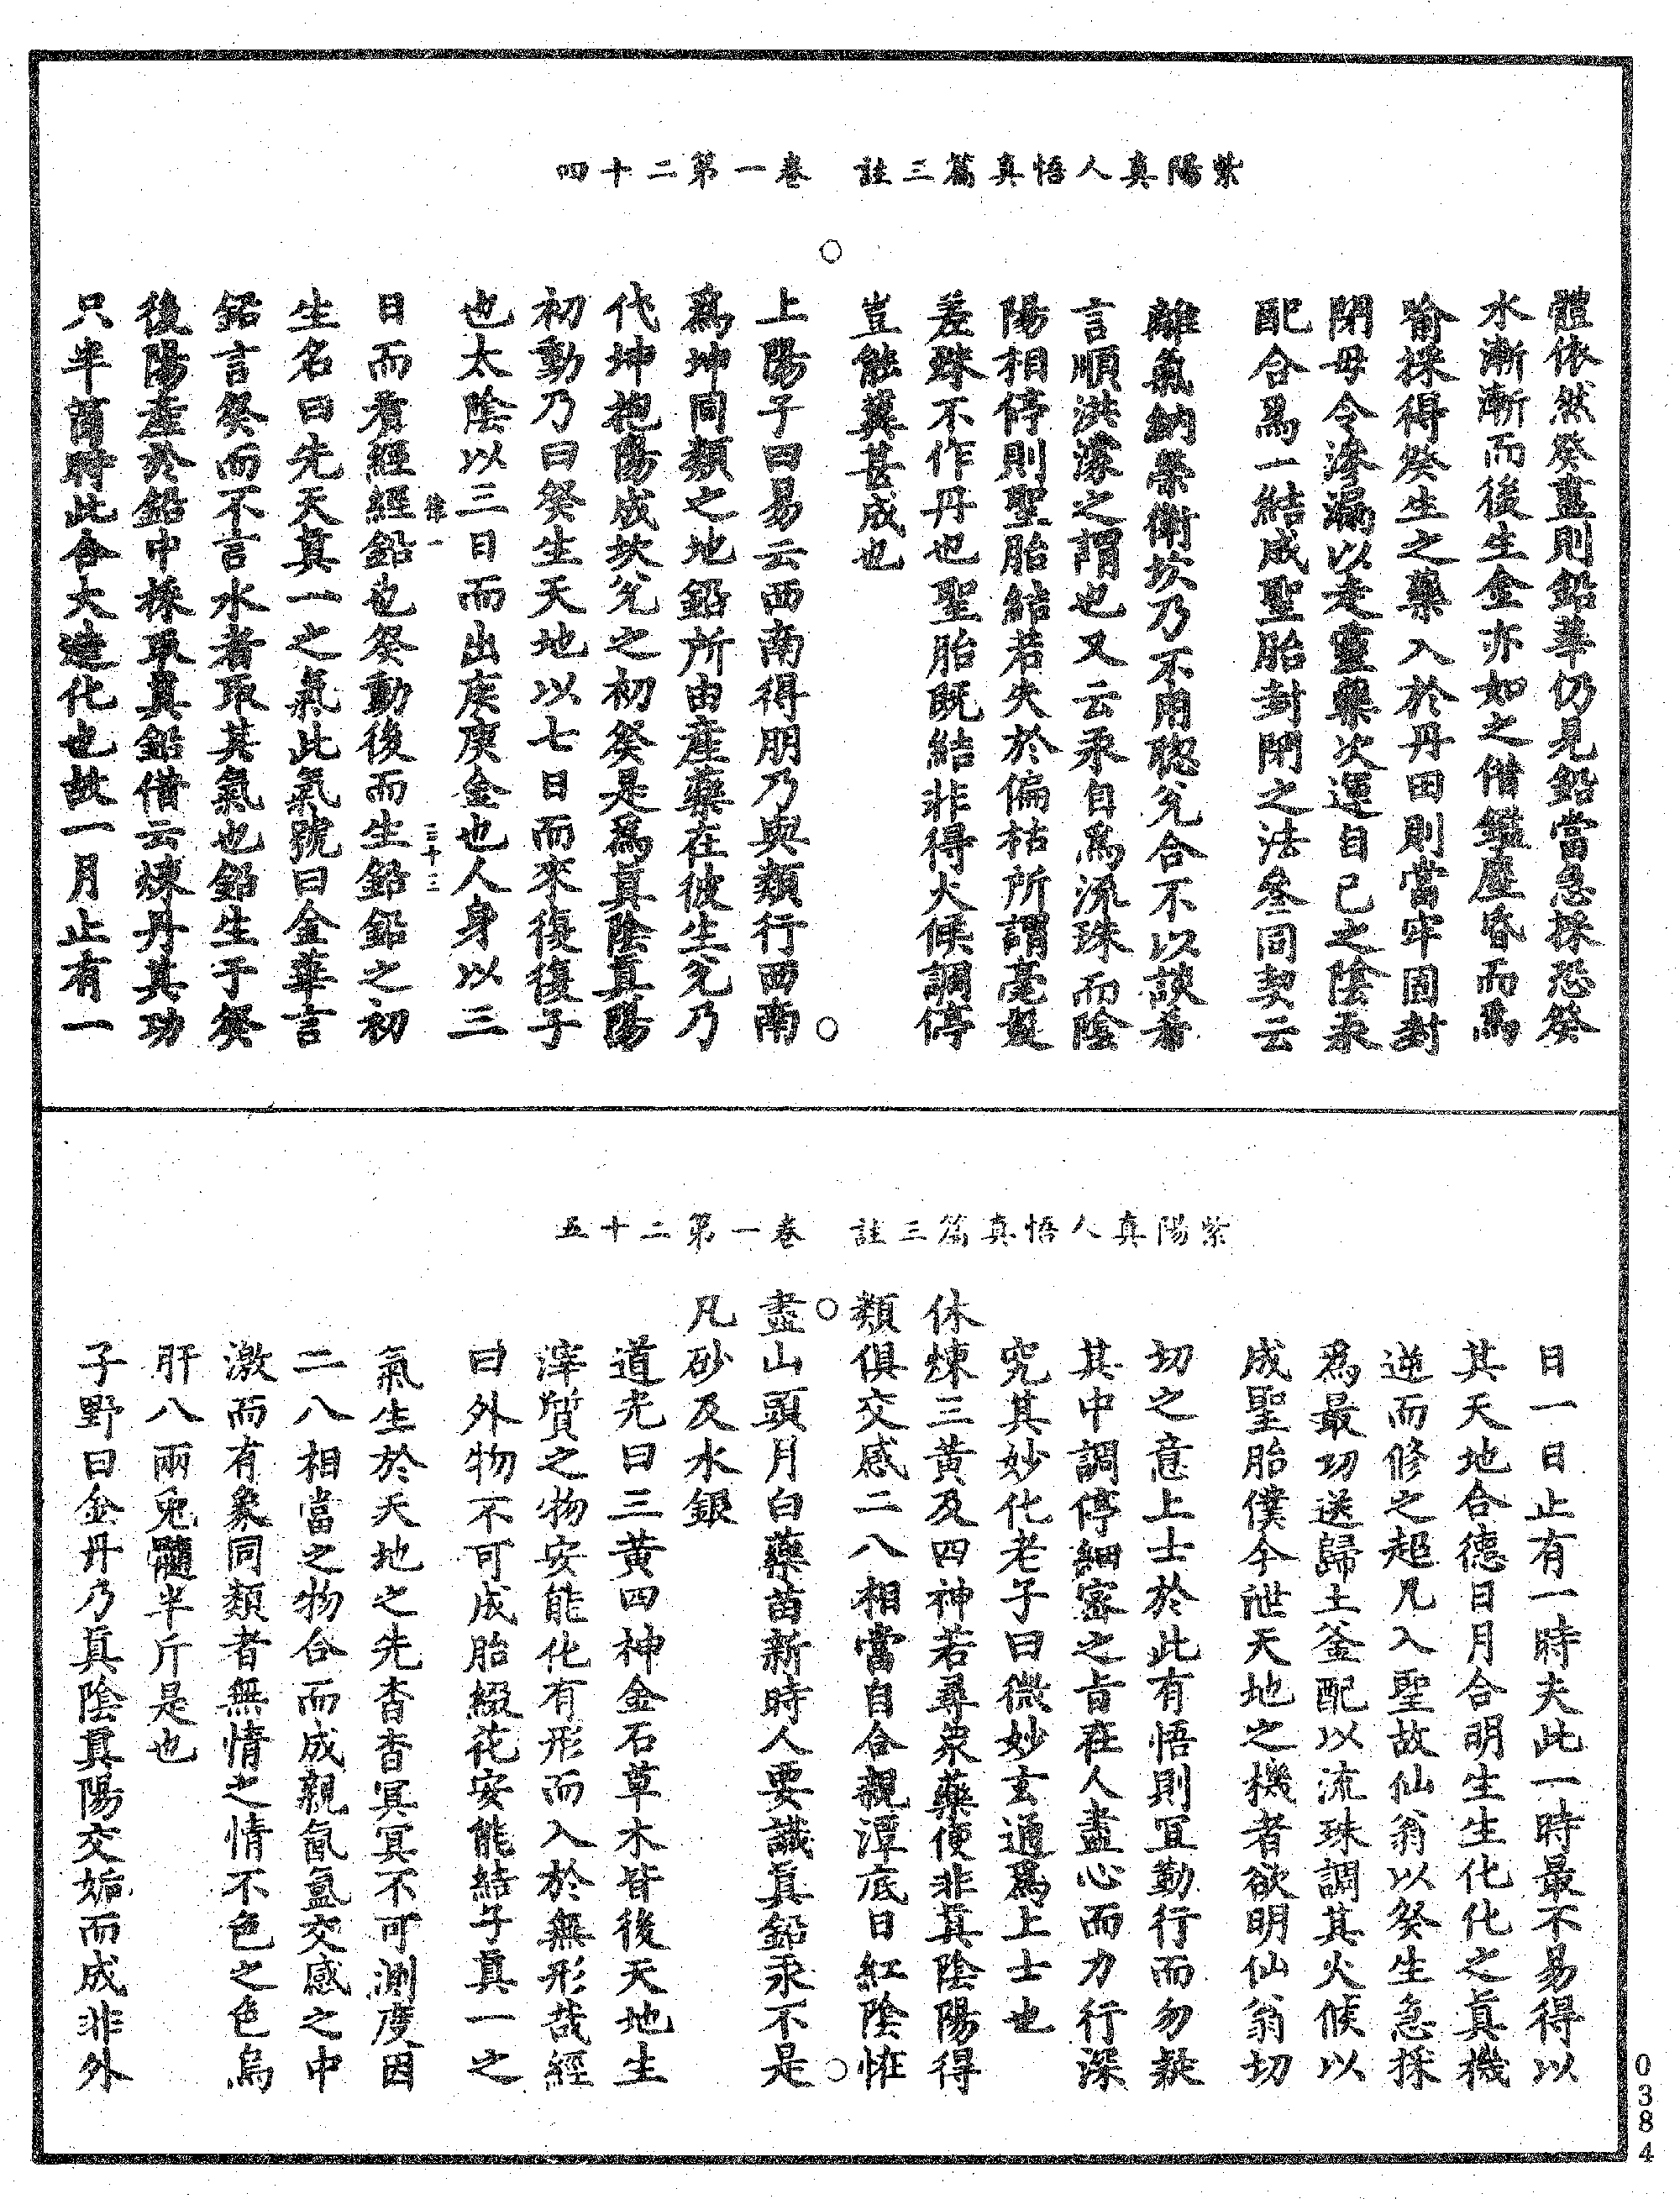 紫陽真人悟真篇三註　卷一第二十四
體依然癸盡則鉛華仍見鉛當急採恐癸
水漸漸而後生金亦如之借鑑塵昏而爲
喻採得癸生之藥入於丹田則當牢固封
閉毋令滲漏以走靈藥次運自己之陰汞
配合爲一結成聖胎封閉之法叅同契云
離氣納榮衛坎乃不用聦兊合不以談希
言順洪濛之謂也又云汞自爲流珠而陰
陽相停則聖胎結若失於偏枯所謂毫髮
差殊不作丹也聖胎既結非得火候調停
豈能冀其成也
上陽子曰易云西南得朋乃與類行西南
爲坤同類之地鉛所由產藥在彼生兊乃
代坤抱陽成坎兊之初癸是爲眞陰眞陽
初動乃曰癸生天地以七日而來復復子
也太陰以三日而出庚庚金也人身以三
律一　二十三
日而看經經鉛也癸動後而生鉛鉛之初
生名曰先天眞一之氣此氣號曰金華言
鉛言癸而不言水者取其氣也鉛生于癸
後陽產於鉛中採取眞鉛借云煉丹其功
只半箇時此合大造化也故一月止有一
紫陽真人悟真篇三註　卷一第二十五
日一日止有一時夫此一時最不易得以
其天地合德日月合明生生化化之眞機
逆而修之超凡入聖故仙翁以癸生急採
爲最功送歸土釜配以流珠調其火候以
成聖胎僕今泄天地之機者欲明仙翁切
切之意上士於此有悟則宜勤行而勿疑
其中調停細密之旨在人盡心而力行深
究其妙化老子曰微妙玄通爲上士也
休煉三黃及四神若尋衆藥便非眞陰陽得
類俱交感二八相當自合親潭底日紅陰怪
盡山頭月白藥苗新時人要識眞鉛汞不是
凡砂及水銀
道光曰三黃四神金石草木皆後天地生
滓質之物安能化有形而入於無形哉經
曰外物不可成胎綴花安能結子眞一之
氣生於天地之先杳杳冥冥不可測度因
二八相當之物合而成親氤氳交感之中
激而有象同類者無情之情不色之色烏
肝八兩兎髓半斤是也
子野曰金丹乃眞陰眞陽交姤而成非外
0384